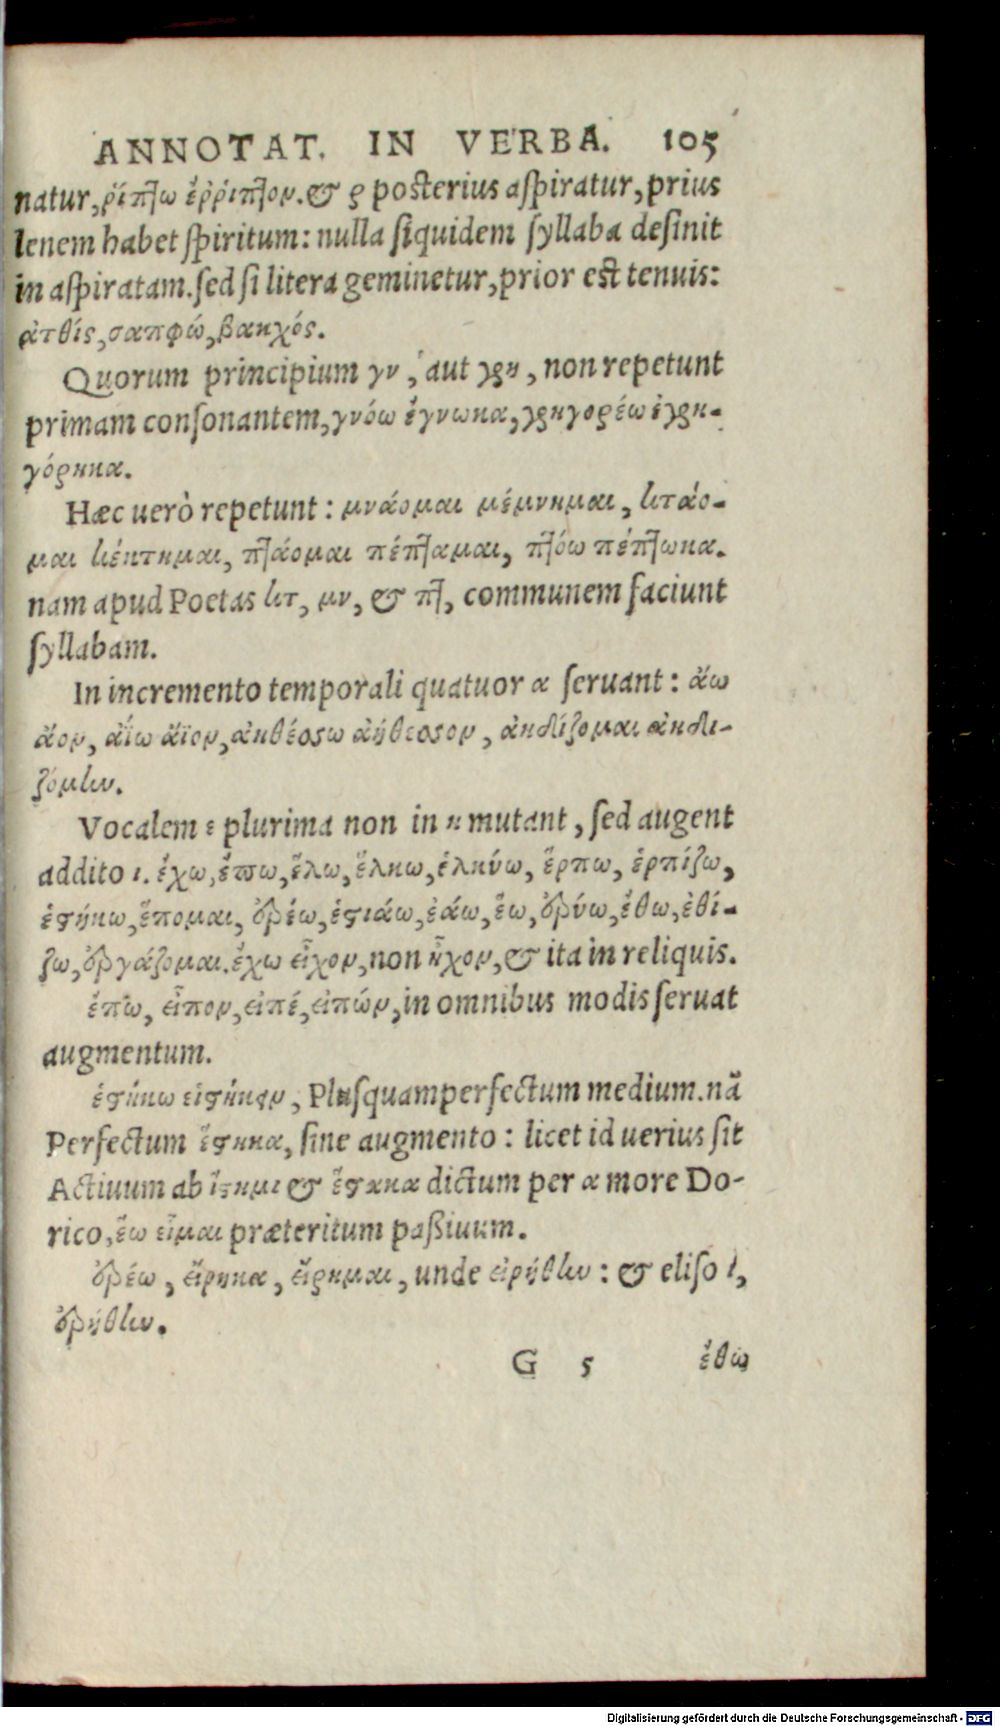 ANNOTAT. IN VERBA. 105
natur, ῥίπτω ἔῤῥιπτον. & ρ posterius aspiratur, prius
lenem habet spiritum: nulla siquidem syllaba desinit
in aspiratam. sed si litera geminetur, prior est tenuis:
ἀτθίς, σαπφώ, βακχός.
Quorum principium γν, aut γρη, non repetunt
primam consonantem, γνόω ἔγνωκα, γρηγορέω ἐγρη-
γόρηκα.
Hæc uerò repetunt: μνάομαι μέμνημαι, κτάο-
μαι κέκτημαι, πτάομαι πέπταμαι, πτόω πέπτωκα.
nam apud Poetas κτ, μν, & πτ, communem faciunt
syllabam.
In incremento temporali quatuor α seruant: ἄω
ἄον, ἀΐω ἄϊον, ἀηθέσσω ἀήθεσσον, ἀηδίζομαι ἀηδι-
ζόμην.
Vocalem ε plurima non in η mutant, sed augent
addito ι. ἔχω, ἔπω, ἕλω, ἕλκω, ἑλκύω, ἕρπω, ἑρπίζω,
ἑστήκω, ἕπομαι, ἐρέω, ἑστιάω, ἐάω, ἕω, ἐρύω, ἔθω, ἐθί-
ζω, ἐργάζομαι. ἔχω εἶχον, non ἦχον, & ita in reliquis.
ἔπω, εἶπον, εἰπέ, εἰπών, in omnibus modis seruat
augmentum.
ἑστήκω εἱστήκειν, Plusquamperfectum medium. nã
Perfectum ἕστηκα, sine augmento: licet id uerius sit
Actiuum ab ἵστημι & ἕστακα dictum per α more Do-
rico, ἕω εἷμαι præteritum passiuum.
ἐρέω, εἴρηκα, εἴρημαι, unde εἰρήθην: & eliso ι,
ἐρήθην.
G 5 ἔθω
Digitalisierung gefördert durch die Deutsche Forschungsgemeinschaft - DFG